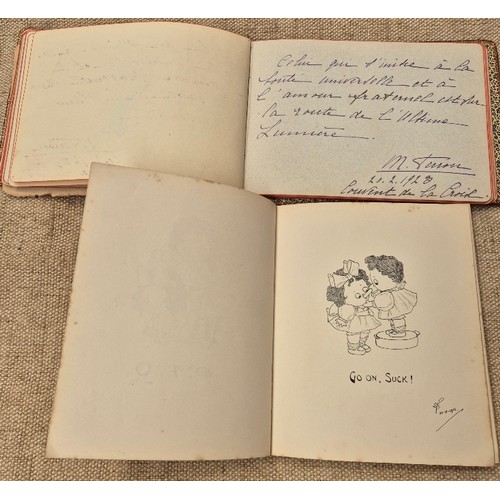 Celui qui s'initie à la
bonté universelle et à
l'amour fraternel est sur
la route de l'Ultime
Lumière.
M.
20.2.1928
Couvent de la Croix
GO ON, SUCK!